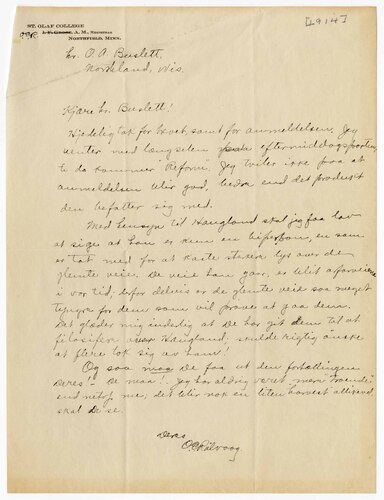 [1914]
ST. OLAF COLLEGE
I. F. GROSE, A. M., REGISTRAR
NORTHFIELD, MINN.
hr. O. A. Buslett,
Northland, Wis.
Kjære hr. Buslett!
Hjertelig tak for brevet, samt for anmeldelsen. Jeg
venter med længselen paa eftermiddagsposten,
te da kommer "Reform". Jeg tviler ikke paa at
anmeldelsen blir god, bedre end det produkt
den befatter sig med.
Med hensyn til Haugland skal jeg faa lov
at sige at han er kun en biperson, en som
er tat med for at kaste sterkere lys over de
glemte veie. De veie han gaar, er blit
i vor tid; derfor delvis er de glemte veie saa meget
tyngre for dem som vil prøve at gaa dem.
Det glæder mig inderlig at De har git dem til at
filosofere over Haugland; skulde rigtig ønske
at flere tok sig av ham!
Og saa maa De faa ut den fortællingen
Deres – De maa! Jeg har aldrig været mere "troende"
end netop nu, det blir nok en liten harvest allikevel
skal De se.
Deres
O E Rölvaag